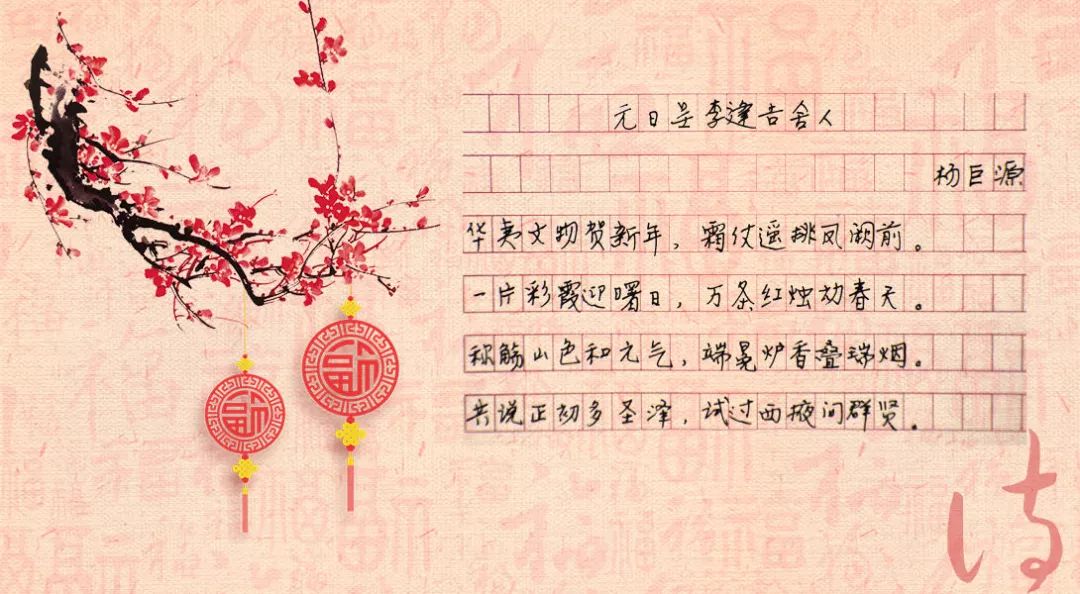 元日呈李逢吉舍人
杨巨源
华夷文物贺新年，霜仗遥排凤阙前。
一片彩霞迎曙日，万条红烛动春天。
称觞山色和元气，端冕炉香叠瑞烟。
共说正初多圣泽，试过西掖问群贤。
福
福
诗